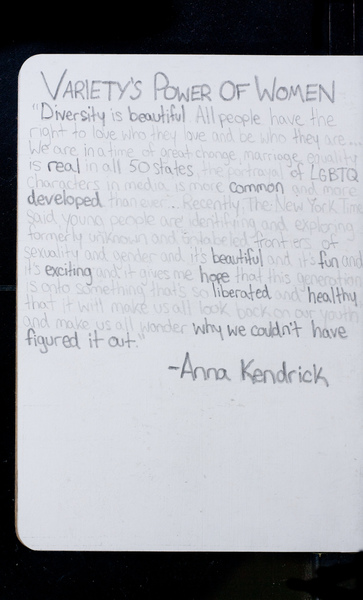 VARIETY'S POWER OF WOMEN
"Diversity is beautiful All people have the
right to love who they love and be who they are...
We are in a time of great change, marriage equality
is real in all 50 states, the portrayal of LGBTQ
characters in media is more common and more
developed than ever... Recently The New York Time
said young people are identifying and exploring
formerly unknown and unlabeled frontiers of
sexuality and gender and it's beautiful and it's fun and
it's exciting and it gives me hope that this generation
is onto something that's so liberated and healthy
that it will make us all look back on our youth
and make us all wonder why we couldn't have
figured it out."
-Anna Kendrick